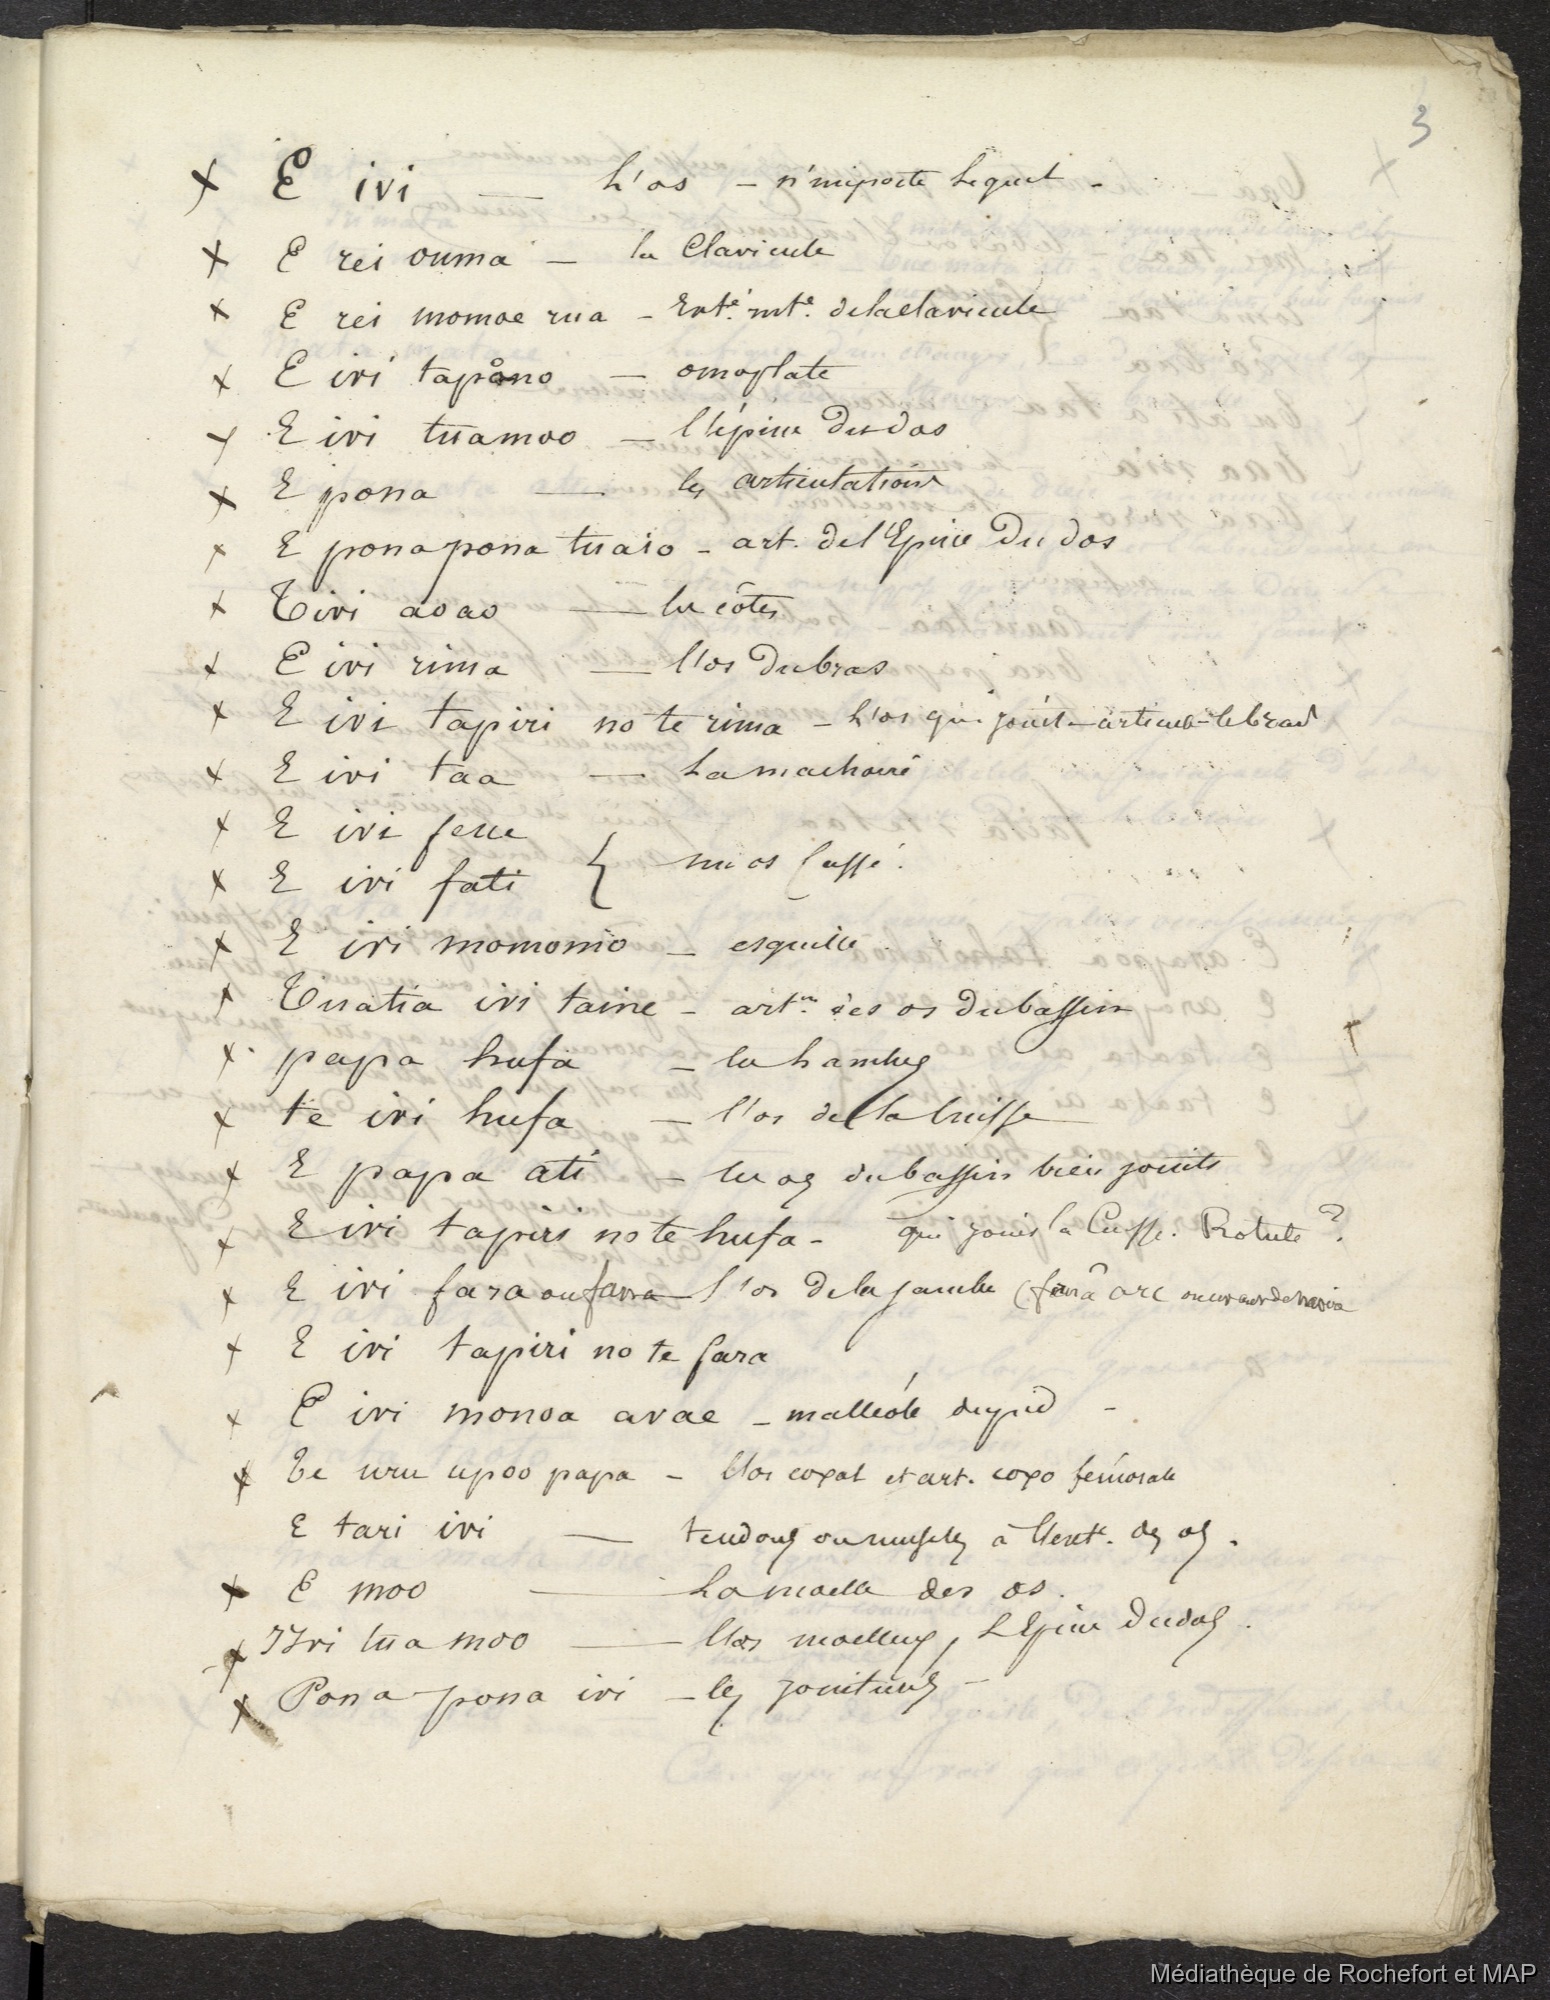 3
x E ivi — L'os — n'importe lequel -
x E rei ouma — la Clavicule
x E rei momoe rua - Exté. int.e de la clavicule
x E ivi tapono — omoplate
x E ivi tuamoo — l'épine du dos
x E pona — les articulations
x E ponapona tuaio - art. de l'Epine du dos
x T ivi aoao — les côtes
x E ivi rima — l'os du bras
x E ivi tapiri no te rima - L'os qui joint - articule - le bras
x E ivi taa — La machoire
x E ivi fene
x E ivi fati { un os Cassé.
x E ivi momomo - esquille
x Tuatia ivi taire - art.on des os du bassin
x papa hufa - les hanches
x te ivi hufa - l'os de la Cuisse
x E papa ati - les os du bassin bien joints
x E ivi tapiri no te hufa - qui joint la Cuisse. Rotule ?
x E ivi fara ou fana l'os de la jambe (fana arc
x E ivi tapiri no te fara
x E ivi monoa avae - malléole du pied -
x Te uru upoo papa - l'os coxal et art. coxo fémorale
E tari ivi — tendons ou muscles à l'ext. des os.
x E moo — La moelle des os.
x Ivi tua moo — l'os moelleux, L'Epine du dos.
x Pona pona ivi - les jointures -
Médiathèque de Rochefort et MAP